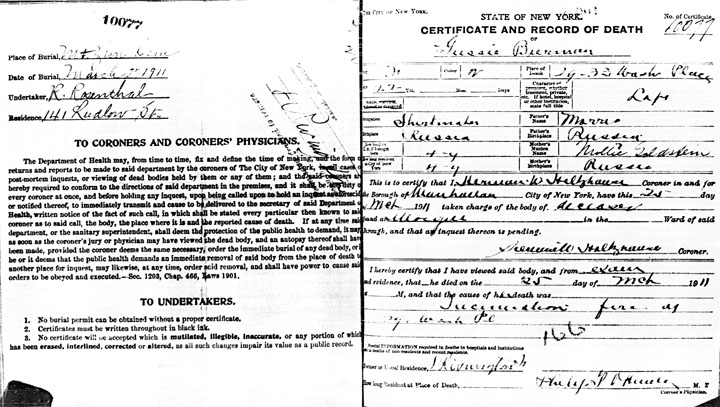 10077
Place of Burial,
Date of Burial, March 1911
Undertaker, R. Rosenthal
Residence, 141 Ludlow St.
TO CORONERS AND CORONERS' PHYSICIANS.
The Department of Health may, from time to time, fix and define the time of making, and the form
returns and reports to be made to said department by the coroners of The City of New York, in all cases
post-mortem inquests, or viewing of dead bodies held by them or any of them; and the said coroners are
hereby required to conform to the directions of said department in the premises, and it shall be duty
every coroner at once, and before holding any inquest, upon being called upon to hold an inquest
or notified thereof, to immediately transmit and cause to be delivered to the secretary of said Department
Health, written notice of the fact of such call, in which shall be stated every particular then known to said
coroner as to said call, the body, the place where it is and the reported cause of death. If at any time said
department, or the sanitary superintendent, shall deem the protection of the public health to demand, it may
as soon as the coroner's jury or physician may have viewed the dead body, and an autopsy thereof shall have
been made, provided the coroner deems the same necessary, order the immediate burial of any dead body, or
he or it deems that the public health demands an immediate removal of said body from the place of death to
another place for inquest, may likewise, at any time, order said removal, and shall have power to cause said
orders to be obeyed and executed.—Sec. 1203, Chap. 466, Laws 1901.
TO UNDERTAKERS.
1. No burial permit can be obtained without a proper certificate.
2. Certificates must be written throughout in black ink.
3. No certificate will be accepted which is mutilated, illegible, inaccurate, or any portion of which
has been erased, interlined, corrected or altered, as all such changes impair its value as a public record.
The City of New York.
STATE OF NEW YORK.
No. of Certificate
10077
CERTIFICATE AND RECORD OF DEATH
OF
Gussie Bierman
Place of Death 29-32 Wash Place
Yrs. Mos. Days
Character of premises, whether tenement, private, etc. If hotel, hospital or other institution, state full title
Loft
Shirtmaker
Father's Name Morris
Russia
Father's Birthplace Russia
Mother's Maiden Name Mollie Goldstein
Mother's Birthplace Russia
This is to certify that I, Herman W. Holtzhauser Coroner in and for
the Borough of Manhattan City of New York, have this 25 day
Mch 1911 taken charge of the body of deceased
found at Morgue in the Ward of said
Borough, and that an inquest thereon is pending.
Herman W. Holtzhauser Coroner.
I hereby certify that I have viewed said body, and from exam
and evidence, that he died on the 25 day of Mch 1911
M., and that the cause of h death was
Incineration fire at
Wash Pl
166
Special INFORMATION required in deaths in hospitals and institutions
and in deaths of non-residents and recent residents.
Former or Usual Residence, 1 Rivington St
How long Resident at Place of Death,
M. D.
Coroner's Physician.